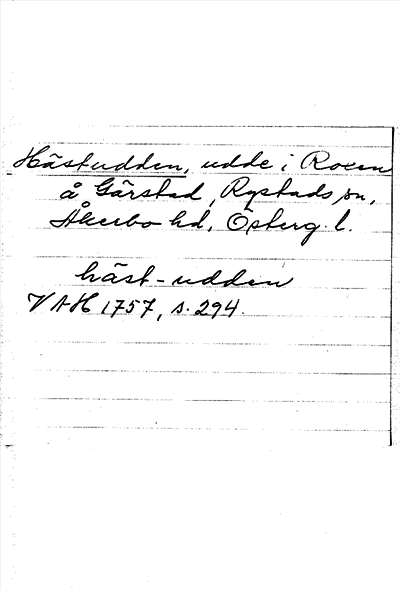 Hästudden, udde i Roxen
å Gärstad, Rystads sn,
Åkerbo hd, Österg. l.
häst-udden
VAH 1757, s. 294.